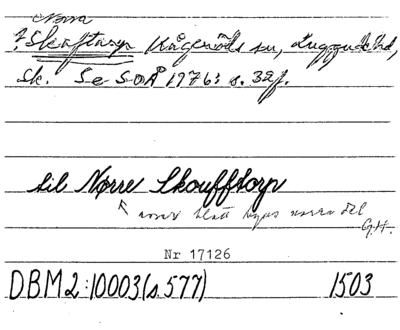 Norra
? Skoftarp Kågeröds sn, Luggude hd,
Sk. Se SOÅ 1776: s. 32f.
til Nørre Skoufftorp
norra
G.H.
Nr 17126
DBM 2:10003 (s. 577) 1503